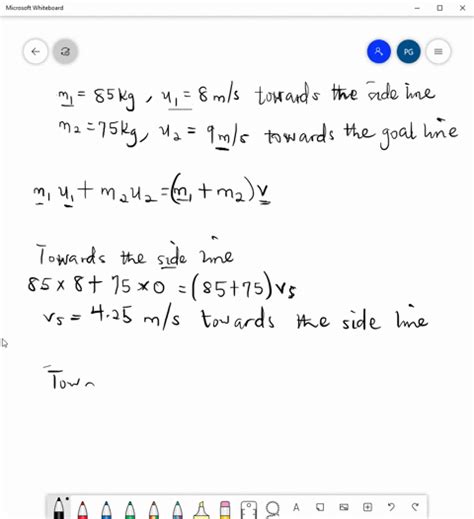 Microsoft Whiteboard
PG
m₁ = 85kg, u₁ = 8 m/s towards the side line
m₂ = 75kg, u₂ = 9 m/s towards the goal line
m₁u₁ + m₂u₂ = (m₁ + m₂)v
Towards the side line
85 × 8 + 75 × 0 = (85+75)vs
vs = 4.25 m/s towards the side line
Tow
A